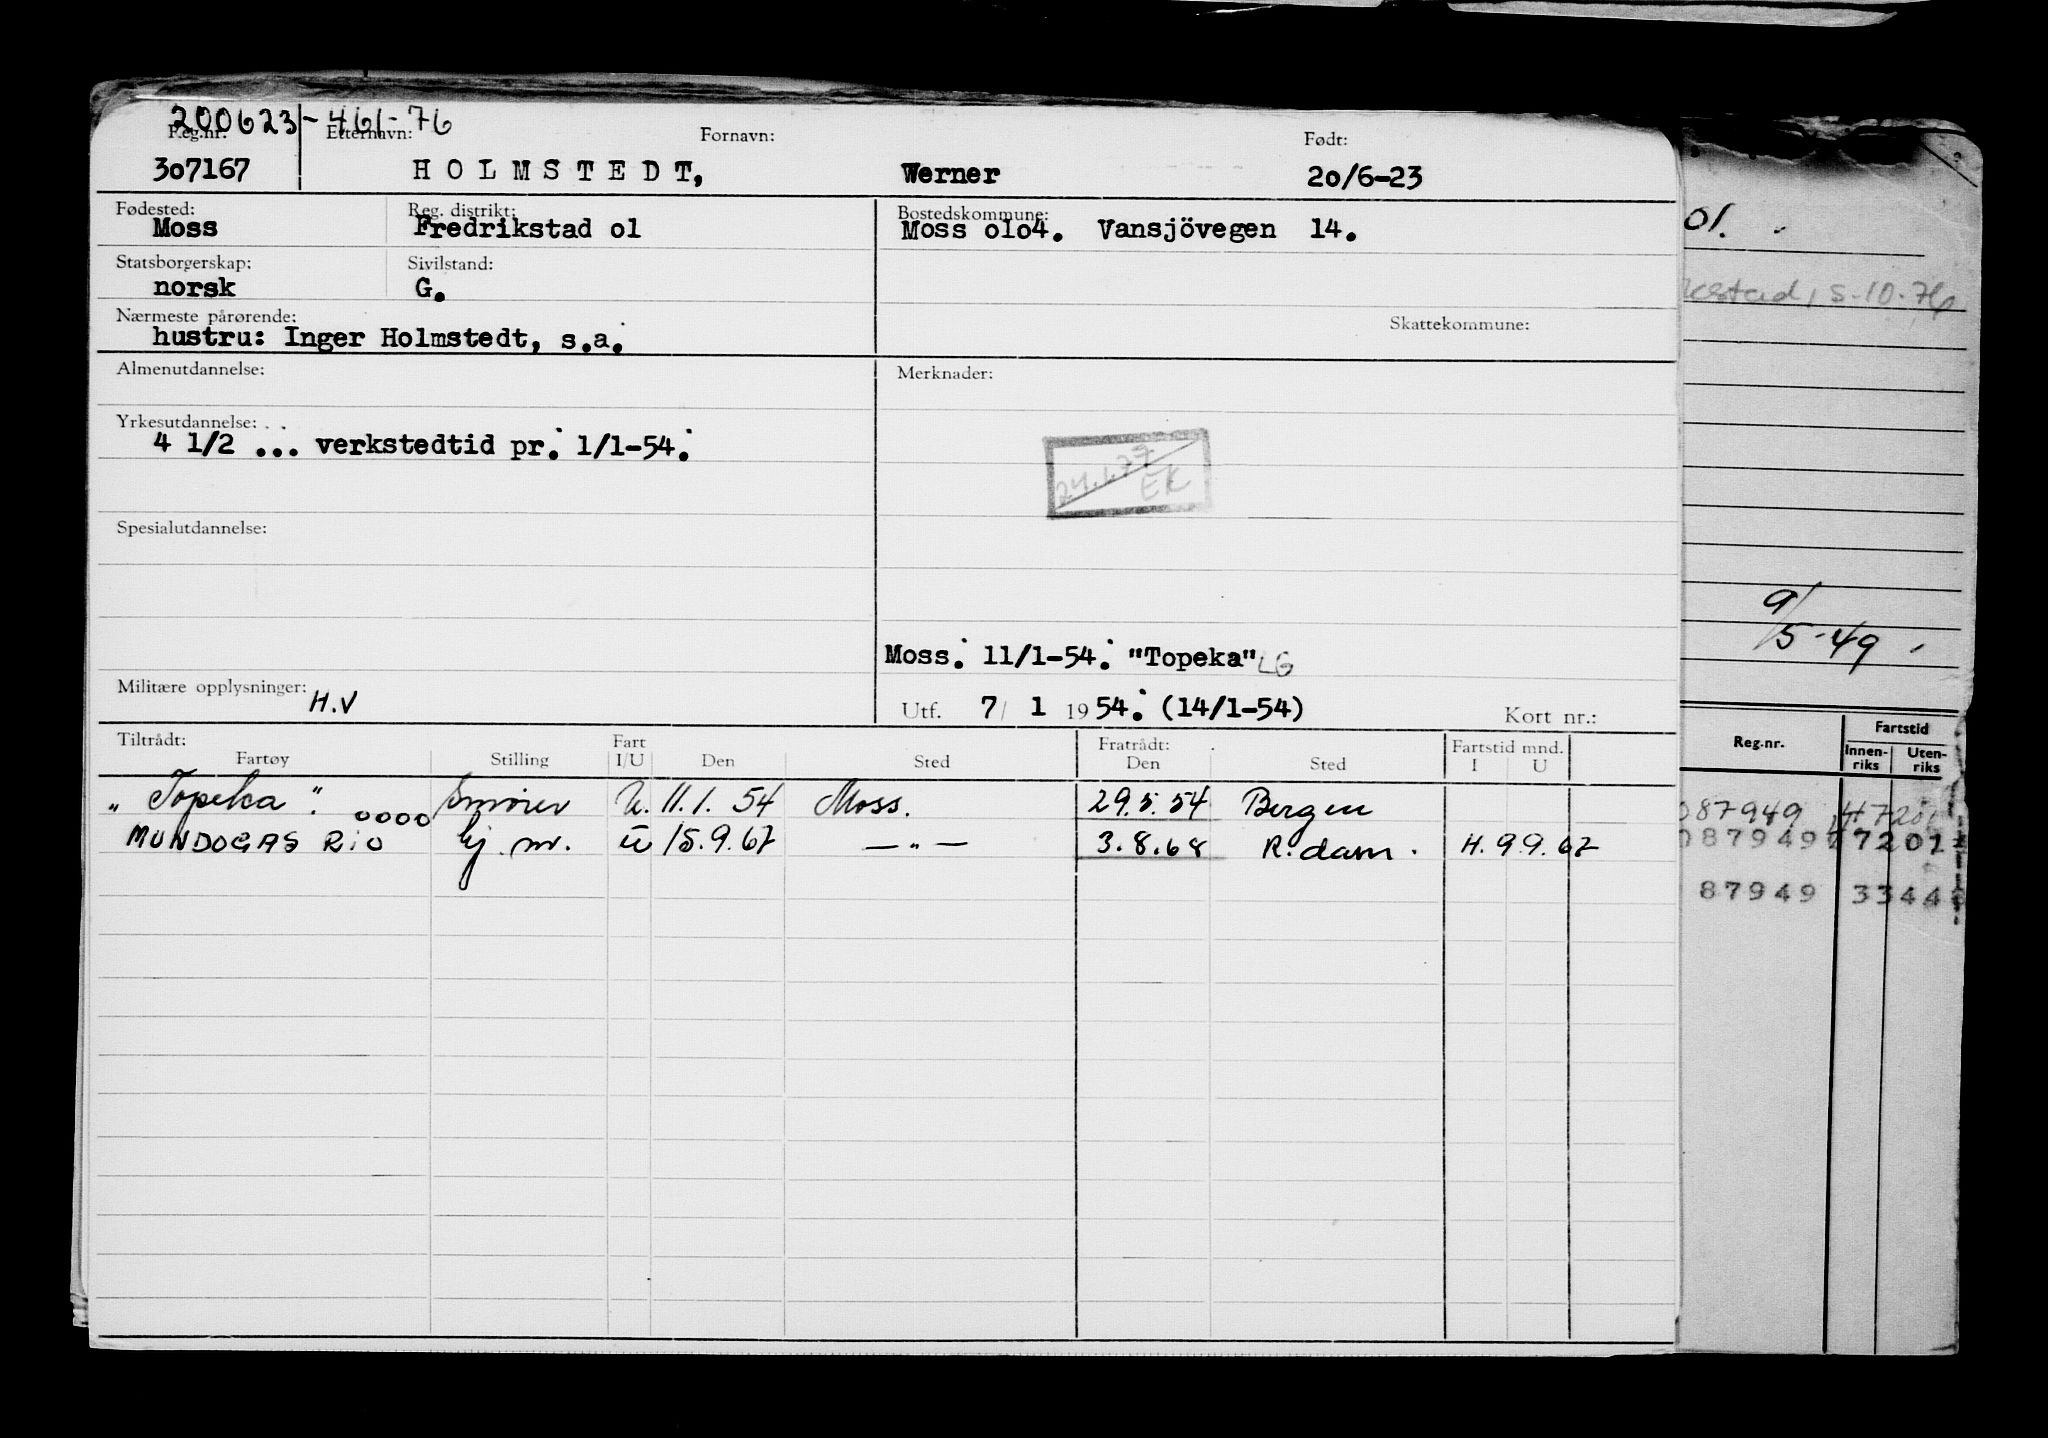 200623-461-76
Reg.nr. Etternavn: Fornavn: Født:
307167 HOLMSTEDT, Werner 20/6-23
Fødested: Reg. distrikt: Bostedskommune:
Moss Fredrikstad 01 Moss 0104. Vansjövegen 14.
Statsborgerskap: Sivilstand:
norsk G.
Nærmeste pårørende: Skattekommune:
hustru: Inger Holmstedt, s.a.
Almenutdannelse: Merknader:
Yrkesutdannelse:
4 1/2 ... verkstedtid pr. 1/1-54.
24.1.77
EK
Spesialutdannelse:
Moss. 11/1-54. "Topeka" LG
Militære opplysninger: H.V
Utf. 7/ 1 1954. (14/1-54) Kort nr.:
Tiltrådt: Fart Fratrådt: Fartstid mnd.
Fartøy Stilling I/U Den Sted Den Sted I U
"Topeka". 0000 Smører U. 11.1.54 Moss. 29.5.54 Bergen
MUNDOGAS RIO hj. m. u 15.9.67 —"— 3.8.68 R.dam. H. 9 9.67
01.
5-10-76
9/5-49
Reg.nr. Fartstid
Innen-riks Uten-riks
087949
087949 7201
87949 3344